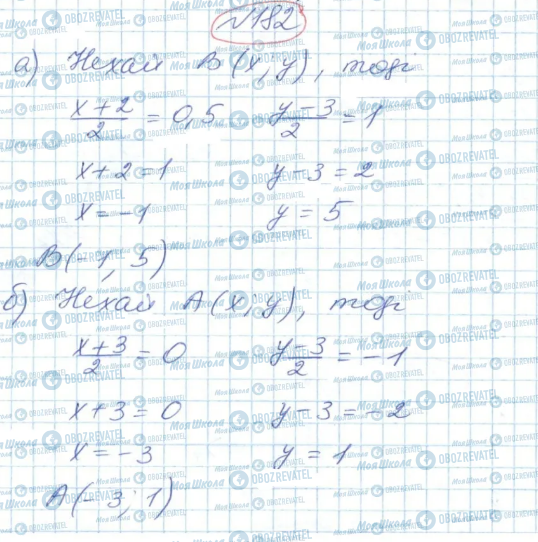 № 782
а) Нехай B(x, y), тоді
x+2/2 = 0,5    y-3/2 = 1
x+2=1    y-3=2
x=-1    y=5
B(-1, 5)
б) Нехай A(x, y), тоді
x+3/2 = 0    y-3/2 = -1
x+3=0    y-3=-2
x=-3    y=1
A(-3; 1)
МояШкола OBOZREVATEL